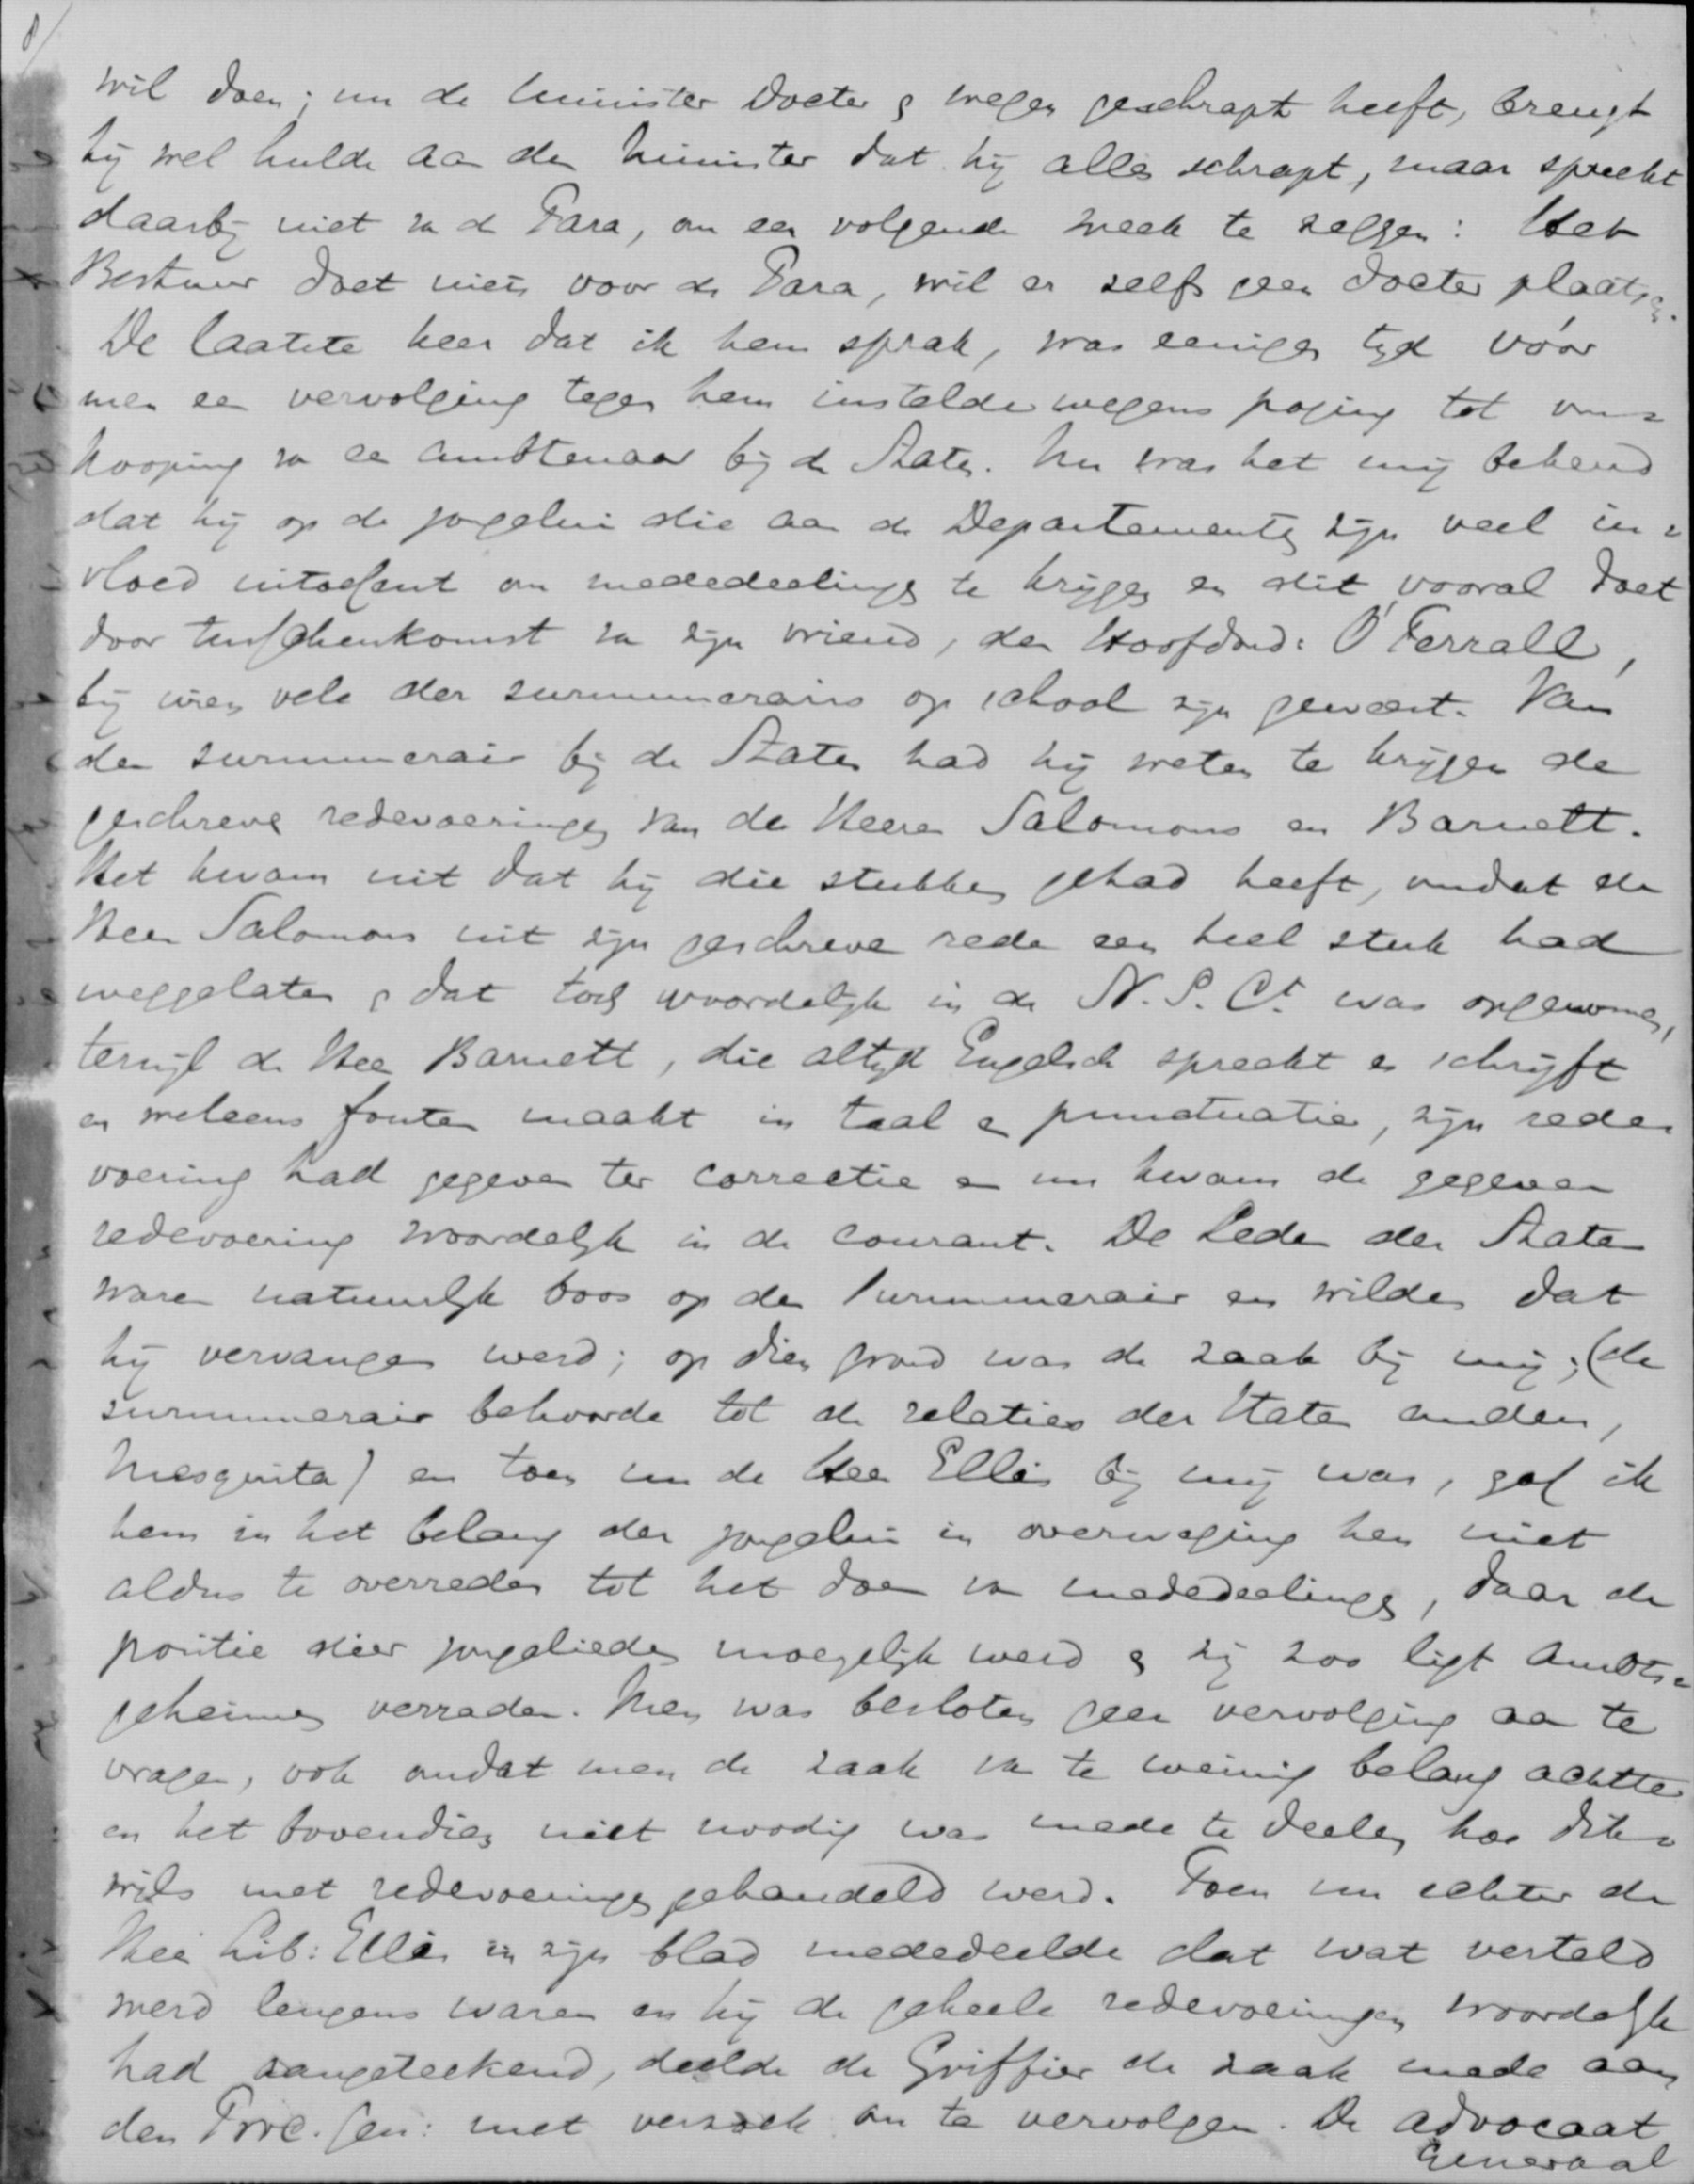 8/
wil doen; nu de Minister Docter & wegen geschrapt heeft, brengt
hij wel hulde aan den Minister dat hij alles schrapt, maar spreekt
daarbij niet van de Para, om een volgende week te zeggen: Het
Bestuur doet niets voor de Para, wil er zelfs geen docter plaatsen.
De laatste keer dat ik hem sprak, was eenigen tijd vóór
men een vervolging tegen hem instelde wegens poging tot om=
kooping van een ambtenaar bij de Staten. Nu was het mij bekend
dat hij op de jongelui die aan de Departementen zijn veel in=
vloed uitoefent om mededeelingen te krijgen en dit vooral doet
door tusschenkomst van zijn vriend, den Hoofdond: O'Ferrall,
bij wien vele der surnumerairs op school zijn geweest. Van
den surnumerair bij de Staten had hij weten te krijgen de
geschreven redevoeringen van de Heeren Salomons en Barnett.
Het kwam uit dat hij die stukken gehad heeft, omdat de
Heer Salomons uit zijn geschreven rede een heel stuk had
weggelaten & dat toch woordelijk in de N.S.Ct. was opgenomen,
terwijl de Heer Barnett, die altijd Engelsch spreekt en schrijft
en weleens fouten maakt in taal en punctuatie, zijn rede=
voering had gegeven ter correctie en nu kwam de gegeven
redevoering woordelijk in de courant. De Leden der Staten
waren natuurlijk boos op den surnumerair en wilden dat
hij vervangen werd; op dien grond was de zaak bij mij; (de
surnumerair behoorde tot de relaties der Staten leden,
Mesquita) en toen nu de Heer Ellis bij mij was, gaf ik
hem in het belang der jongelui in overweging hen niet
aldus te overreden tot het doen van mededeelingen, daar de
positie dier jongelieden moeyelijk werd & zij zoo ligt ambts=
geheimen verraden. Men was besloten geen vervolging aan te
vragen, ook omdat men de zaak van te weinig belang achtte
en het bovendien niet noodig was mede te deelen hoe dik=
wijls met redevoeringen gehandeld werd. Toen nu echter de
Heer Lib: Ellis in zijn blad mededeelde dat wat verteld
werd leugens waren en hij de geheele redevoeringen woordelijk
had aangeteekend, deelde de Griffier de zaak mede aan
den Proc. Gen: met verzoek om te vervolgen. De advocaat
Generaal